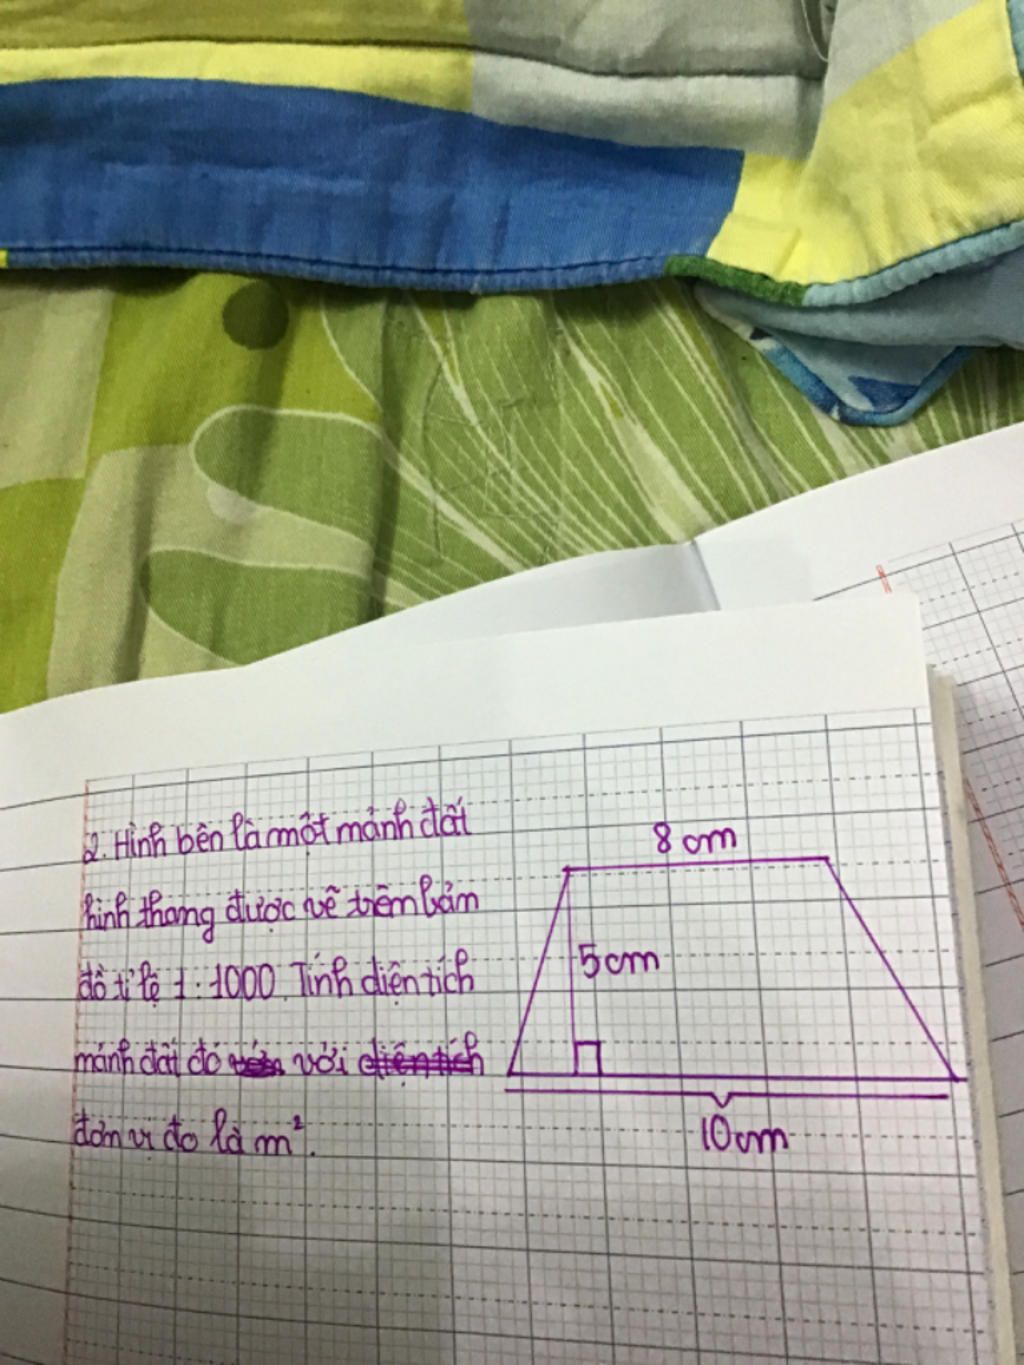 2. Hình bên là một mảnh đất
hình thang được vẽ trên bản
đồ tỉ lệ 1 : 1000. Tính diện tích
mảnh đất đó với diện tích
đơn vị đo là m².
8 cm
5cm
10cm